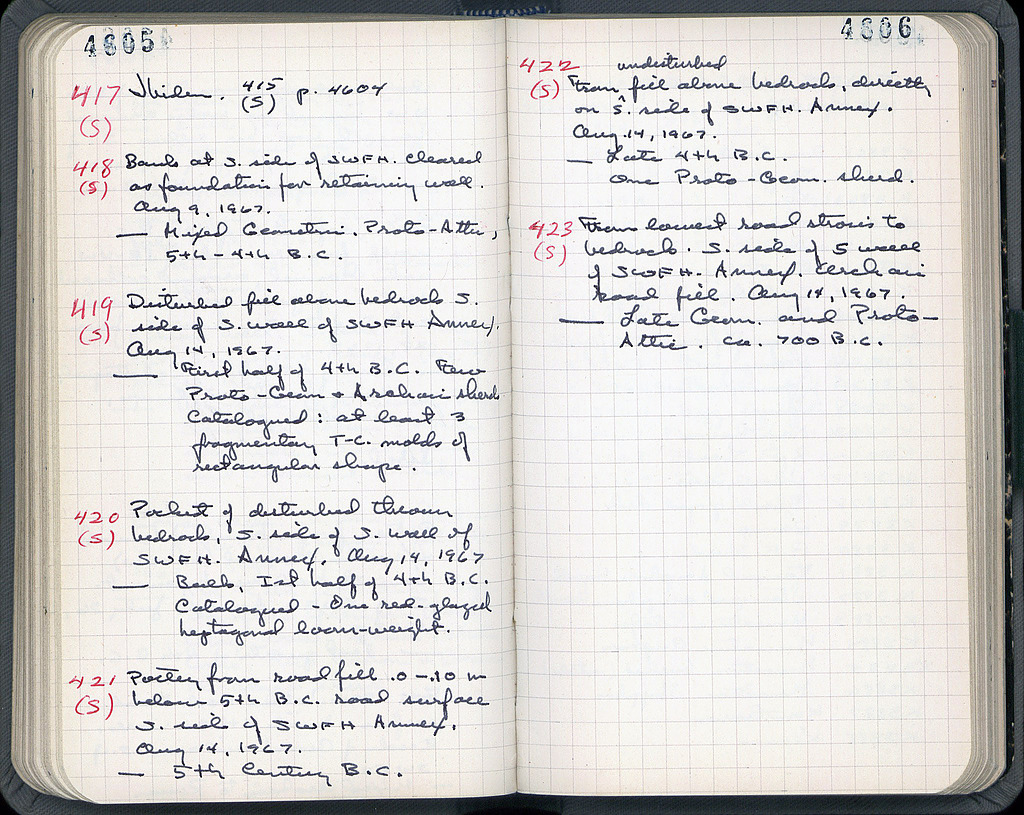 4605
417 Ibidem. 415 p. 4604
(S) (S)
418 Banks at S. side of SWFH. cleared
(S) as foundation for retaining wall.
Aug 9, 1967.
— Mixed Geometric. Proto-Attic,
5th - 4th B.C.
419 Disturbed fill above bedrock S.
(S) side of S. wall of SWFH Annex.
Aug 14, 1967.
— First half of 4th B.C. Few
Proto-Geom & Archaic sherds
Catalogued: at least 3
fragmentary T-C. molds of
rectangular shape.
420 Pocket of disturbed
(S) bedrock, S. side of S. wall of
SWFH. Annex. Aug 14, 1967
— Bulk, 1st half of 4th B.C.
Catalogued - One red-glazed
heptagonal loom-weight.
421 Pottery from road fill .0 - .10 m
(S) below 5th B.C. road surface
S. side of SWFH Annex.
Aug 14, 1967.
— 5th Century B.C.
4606
422 undisturbed
(S) From fill above bedrock, directly
on S. side of SWFH. Annex.
Aug. 14, 1967.
— Late 4th B.C.
One Proto-Geom. sherd.
423 From lowest road strosis to
(S) bedrock. S. side of S wall
of SWFH. Annex. Archaic
road fill. Aug 14, 1967.
— Late Geom. and Proto-
Attic. ca. 700 B.C.